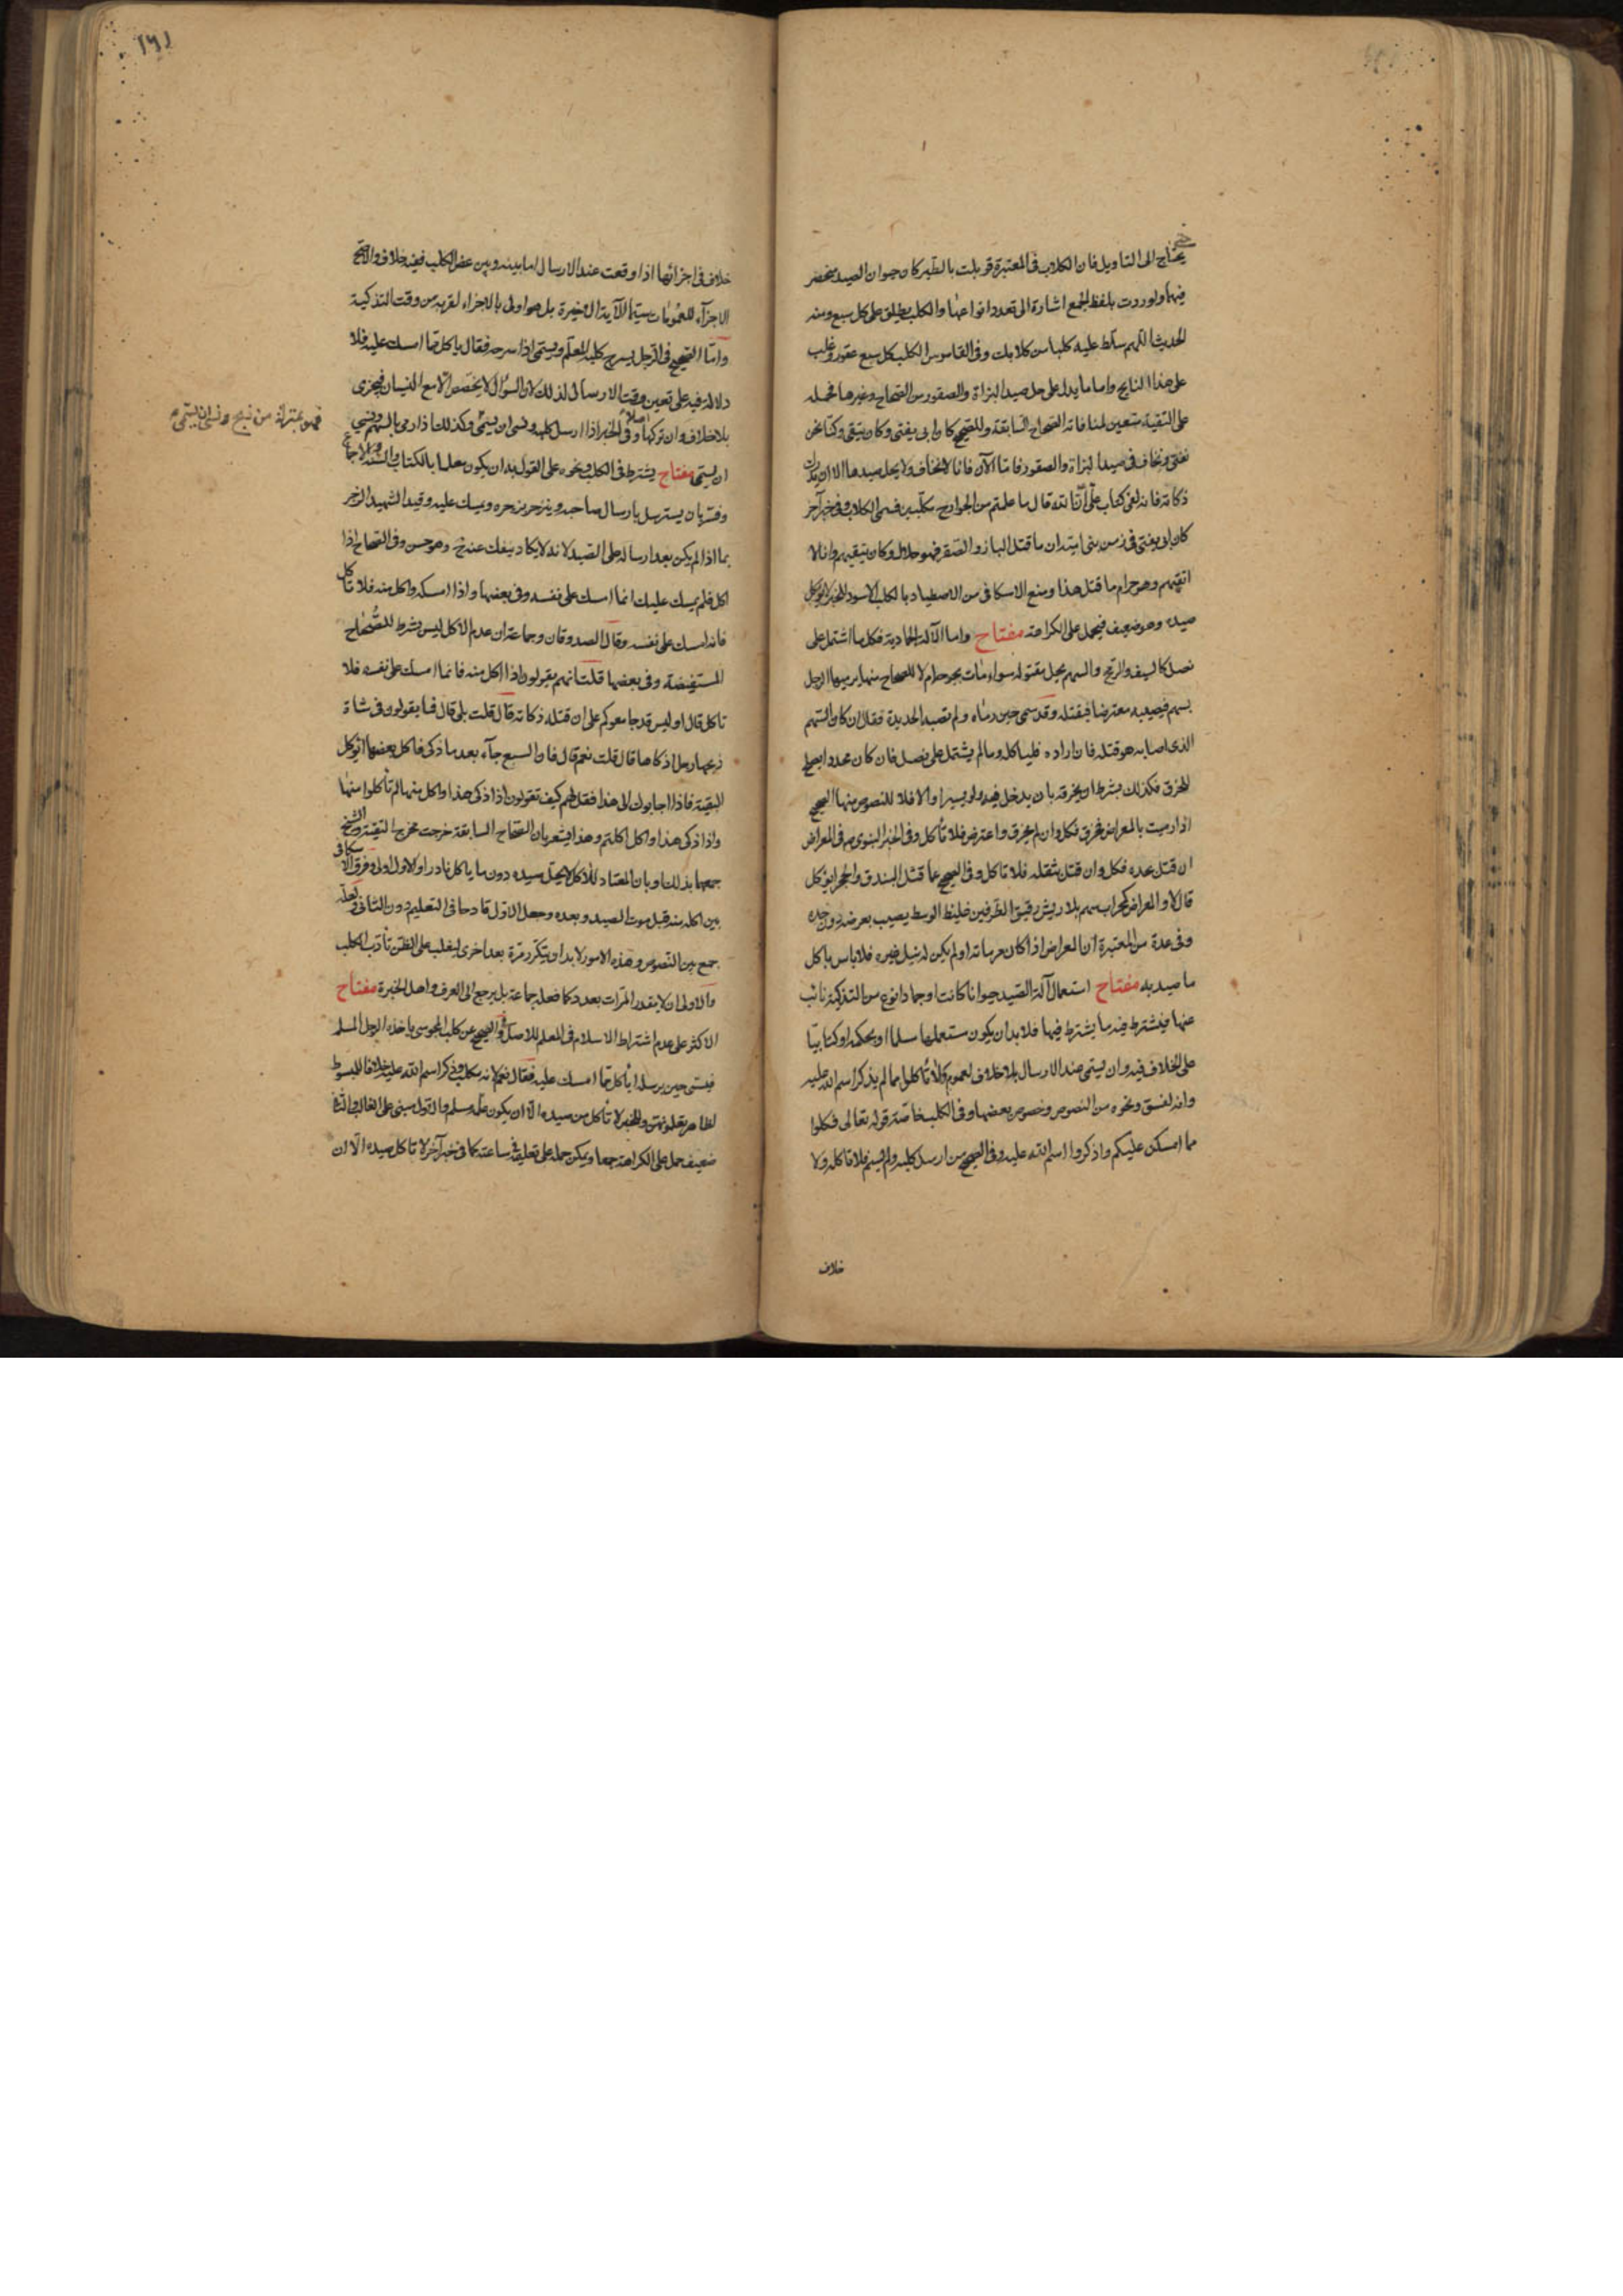 يحتاج الى التاويل فان الكلاب فى المعتبرة قوبلت بالطير كان حيوان الصيد منحصر
فيهما ولو وردت بلفظ الجمع اشارة الى تعدد انواعها والكلب يطلق على كل سبع ومنه
الحديث اللهم سلط عليه كلبا من كلابك وفى القاموس الكلب كل سبع عقور وغلب
على هذا النابح واما ما يدل على حل صيد البزاة والصقور من الصحاح وغيرها فمحمله
على التقية متعين لمنافاته الصحاح السابقة وللصحيح كان ابى يفتى وكان يتقى وكنا نحن
نفتى ونخاف فى صيد البزاة والصقور فاما الآن فانا لا نخاف ولا يحل صيدها الا ان يدرك
ذكاته فانه لفى كتاب على ان الله قال ما علمتم من الجوارح مكلبين فسمى الكلاب وفى خبر آخر
كان ابى يفتى فى زمن بنى امية ان ما قتل الباز والصقر فهو حلال وكان يتقيهم وانا لا
اتقيهم وهو حرام ما قتل هذا ومنع الاسكافى من الاصطياد بالكلب الاسود للخبر لا يؤكل
صيده وهو ضعيف فيحمل على الكراهة مفتاح واما الآلة الجمادية فكل ما اشتمل على
نصل كالسيف والرمح والسهم يحل مقتوله سواء مات بجرحه ام لا للصحاح منها يرميها الرجل
بسهم فيصيبه معترضا فيقتله وقد سمى حين رماه ولم تصبه الحديدة فقال ان كان السهم
الذى اصابه هو قتله فان اراده فلياكله وما لم يشتمل على نصل فان كان محددا يصلح
للخرق فكذلك بشرط ان يخرقه بان يدخل فيه ولو يسيرا والا فلا للنصوص منها الصحيح
اذا رميت بالمعراض فخرق فكل وان لم يخرق واعترض فلا تأكل وفى الخبر النبوى فى المعراض
ان قتل بحده فكل وان قتل بثقله فلا تاكل وفى الصحيح عما قتل البندق والحجر ايؤكل
قال لا والمعراض كمحراب سهم بلا ريش دقيق الطرفين غليظ الوسط يصيب بعرضه دون حده
وفى عدة من المعتبرة ان المعراض اذا كان مرماته او لم يكن له نبل غيره فلا باس باكل
ما صيد به مفتاح استعمال آلة الصيد حيوانا كانت او جمادا نوع من التذكية نائب
عنها فيشترط فيه ما يشترط فيها فلابد ان يكون مستعملها مسلما او بحكمه او كتابيا
على الخلاف فيه وان يسمى عند الارسال بلا خلاف لعموم ولا تأكلوا مما لم يذكر اسم الله عليه
وانه لفسق ونحوه من النصوص وخصوص بعضها وفى الكلب خاصة قوله تعالى فكلوا
مما امسكن عليكم واذكروا اسم الله عليه وفى الصحيح من ارسل كلبه ولم يسم فلا تاكله ولا
خلاف
١٦١
خلاف فى اجزائها اذا وقعت عند الارسال اما بينه وبين عض الكلب ففيه خلاف والاصح
الاجزآء للعمومات سيما الآية الاخيرة بل هو اولى بالاجزاء لقربه من وقت التذكية
واما الصحيح فى الرجل يسرح كلبه المعلم ويسمى اذا سرحه فقال ياكل مما امسك عليه فلا
دلالة فيه على تعين وقت الارسال لذلك لان السؤال لا يخصص الا مع النسيان فيجزى
بلا خلاف وان تركها اصلا وفى الخبر اذا ارسل كلبه ونسى ان يسمى وكذلك اذا رمى بالسهم ونسى
فهو بمنزلة من ذبح ونسى ان يسمى
ان يسمى مفتاح يشترط فى الكلب ونحوه على القول به ان يكون معلما بالكتاب والسنة والاجماع
وفسر بان يسترسل بارسال صاحبه وينزجر بزجره ويمسك عليه وقيد الشهيد الزجر
بما اذا لم يكن بعد ارساله على الصيد لانه لا يكاد ينفك عنه وهو حسن وفى الصحاح اذا
اكل فلم يمسك عليك انما امسك على نفسه وفى بعضها واذا امسكه واكل منه فلا تاكل
فانه امسك على نفسه وقال الصدوقان وجماعة ان عدم الاكل ليس بشرط للصحاح
المستفيضة وفى بعضها قلت انهم يقولون اذا اكل منه فانما امسك على نفسه فلا
تاكل قال اوليس قد جامعوكم على ان قتله ذكاته قال قلت بلى قال فما يقولون فى شاة
ذبحها رجل اذكاها قال قلت نعم قال فان السبع جآء بعد ما ذكى فاكل بعضها ايؤكل
البقية فاذا اجابوك الى هذا فقل لهم كيف تقولون اذا ذكى هذا واكل منها لم تأكلوا منها
واذا ذكى هذا واكل اكلتم وهذا يشعر بان الصحاح السابقة خرجت مخرج التقية والشيخ
جمعها بذلك او بان المعتاد للاكل لا يحل صيده دون ما ياكل نادرا والاول اولى وفرق الاسكافى
بين اكله منه قبل موت الصيد وبعده وجعل الاول قادحا فى التعليم دون الثانى ولعله
جمع بين النصوص وهذه الامور لابد ان يتكرر مرة بعد اخرى ليغلب على الظن تأدب الكلب
والاولى ان لا يقدر المرات بعدد كما فعله جماعة بل يرجع الى العرف واهل الخبرة مفتاح
الاكثر على عدم اشتراط الاسلام فى المعلم للاصل وفى الصحيح عن كلب المجوسى ياخذه الرجل المسلم
فيسمى حين يرسله اياكل مما امسك عليه فقال نعم لانه مكلب وذكر اسم الله عليه خلافا للمبسوط
لظاهر تعلمونهن وللخبر لا تأكل من صيده الا ان يكون علمه مسلم والاول مبنى على الغالب والثانى
ضعيف حمل على الكراهة جمعا ويمكن حمله على تعليمه فى ساعته كما فى خبر آخر لا تاكل صيده الا ان